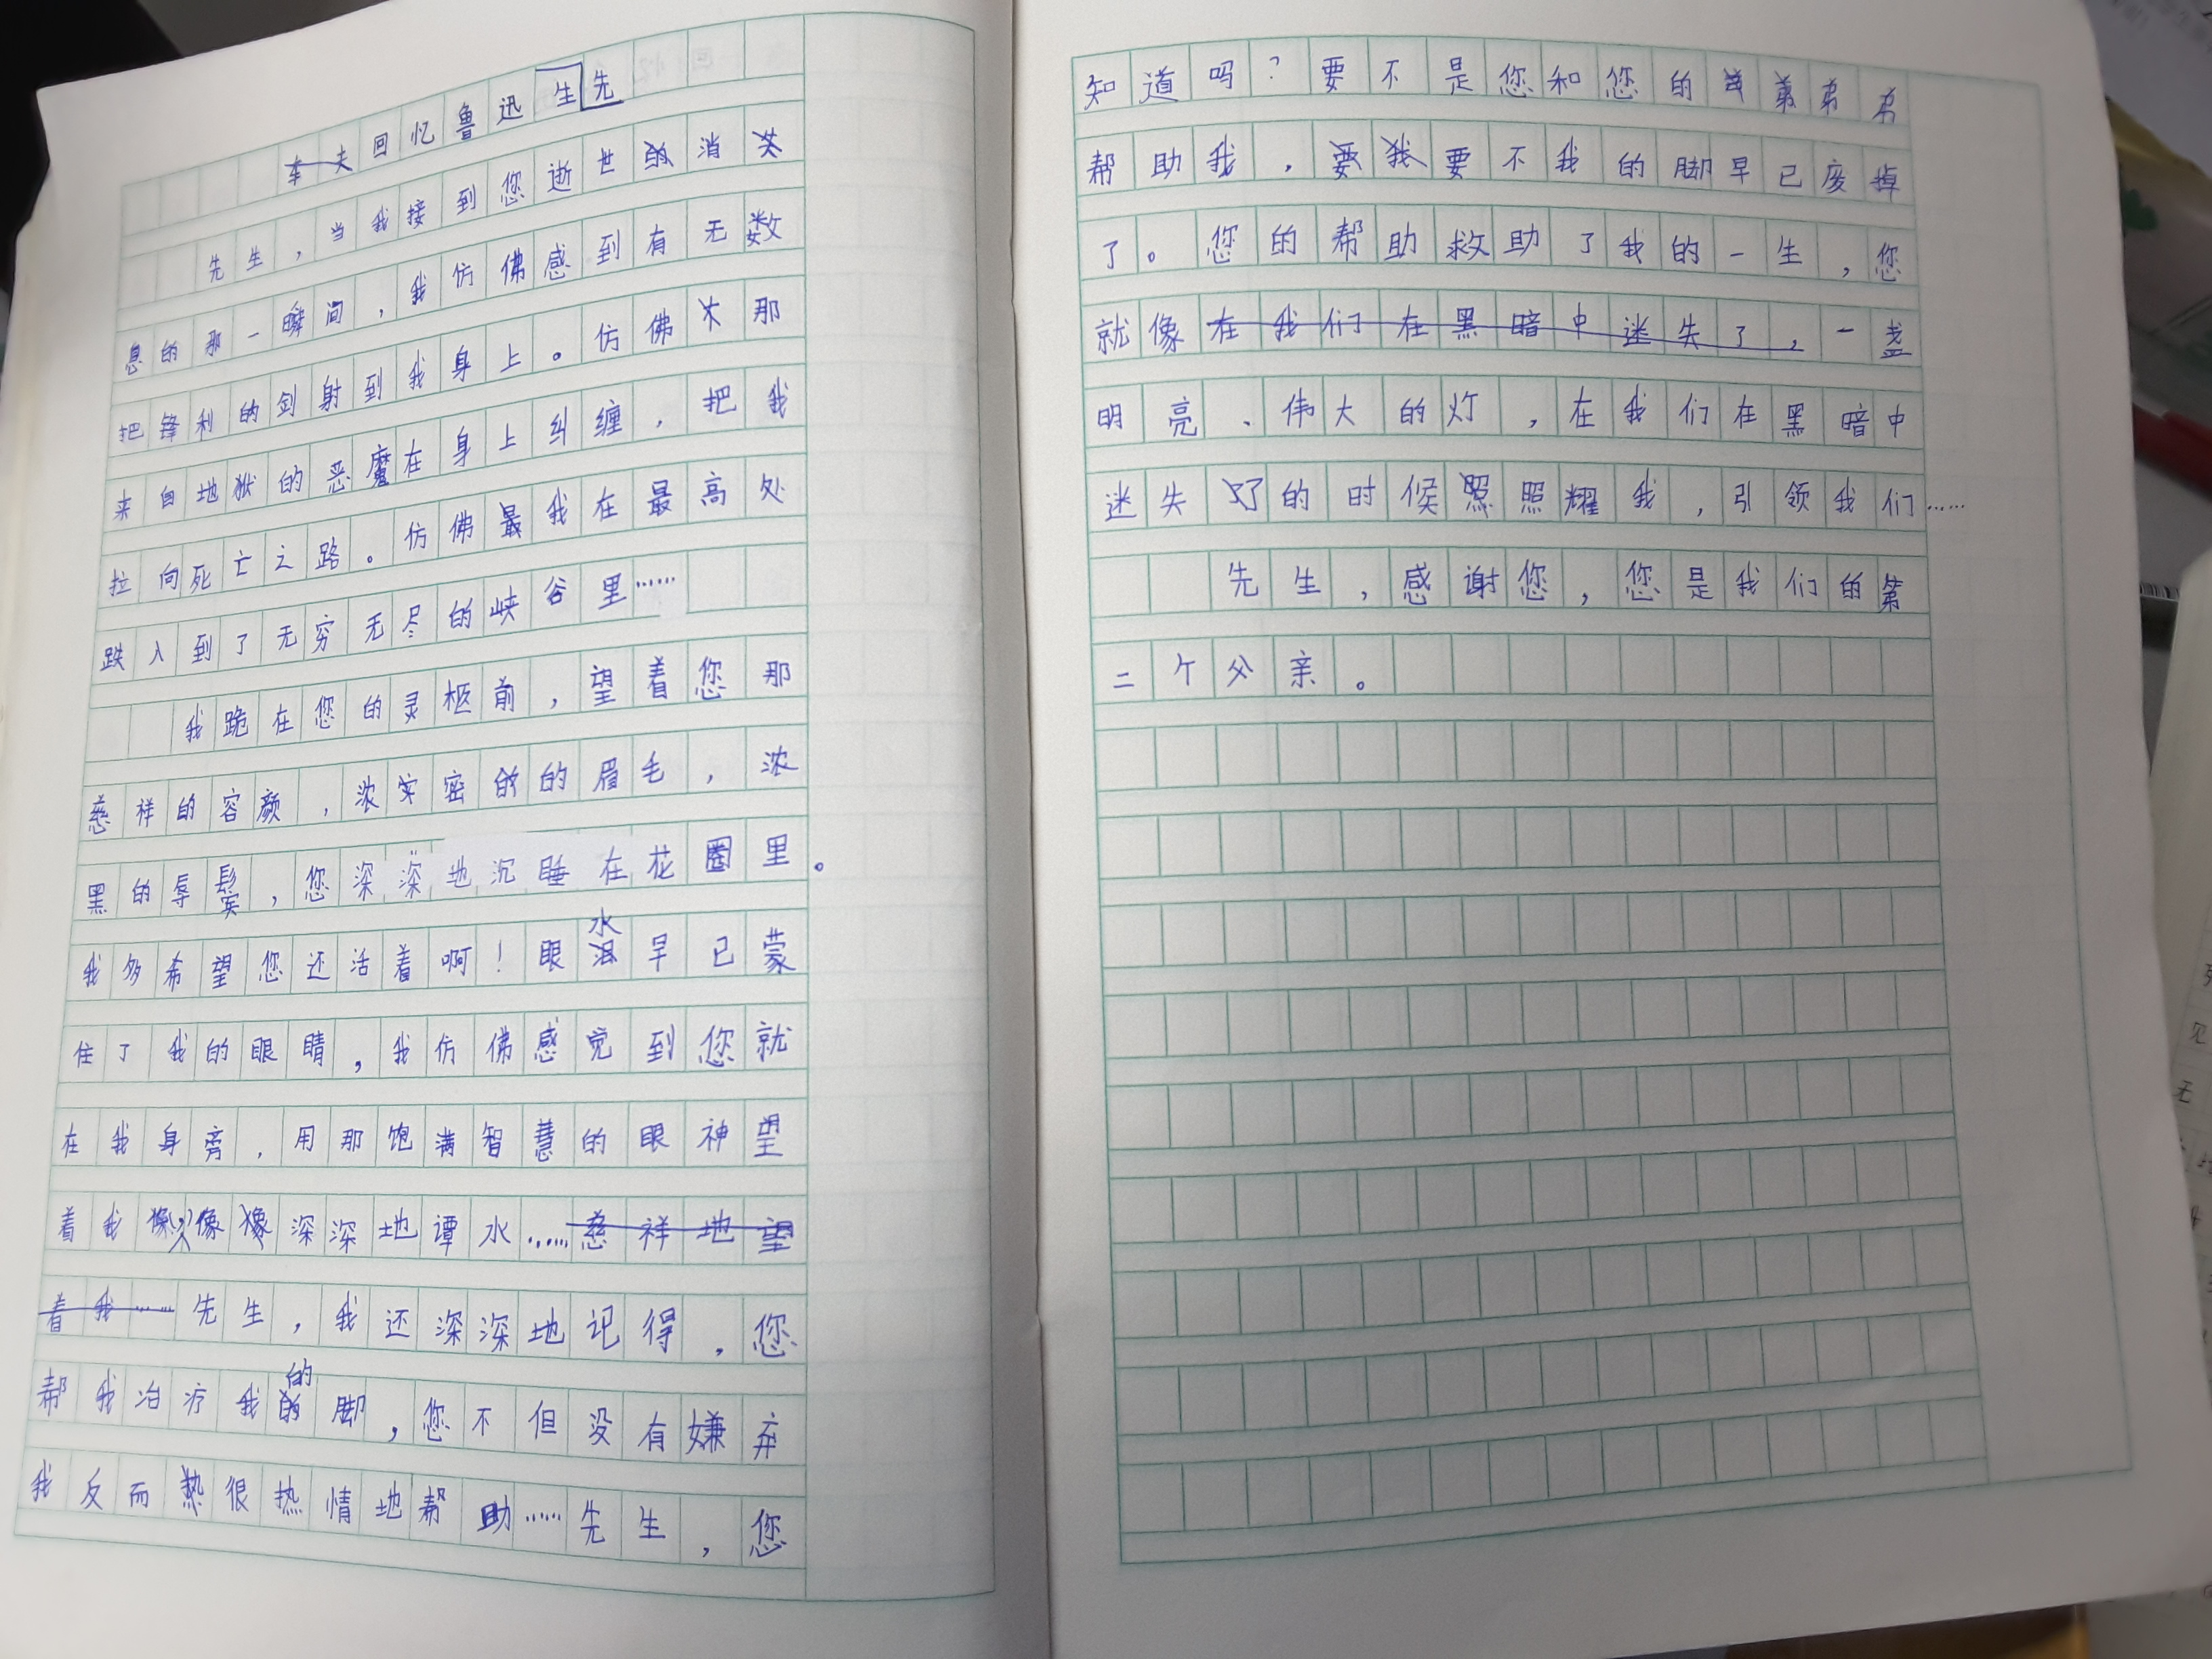 车夫回忆鲁迅生先
先生，当我接到您逝世的消失
息的那一瞬间，我仿佛感到有无数
把锋利的剑射到我身上。仿佛大那
来自地狱的恶魔在身上纠缠，把我
拉向死亡之路。仿佛最我在最高处
跌入到了无穷无尽的峡谷里……
我跪在您的灵柩前，望着您那
慈祥的容颜，浓实密的的眉毛，浓
黑的辱鬓，您深深地沉睡在花圈里。
我多希望您还活着啊！眼泪水早已蒙
住了我的眼睛，我仿佛感觉到您就
在我身旁，用那饱满智慧的眼神望
着我像像像深深地谭水……慈祥地望
着我……先生，我还深深地记得，您
帮我治疗我的的脚，您不但没有嫌弃
我反而热很热情地帮助……先生，您
知道吗？要不是您和您的弟弟
帮助我，要我要不我的脚早已废掉
了。您的帮助救助了我的一生，您
就像在我们在黑暗中迷失了，一盏
明亮、伟大的灯，在我们在黑暗中
迷失灯的时候照照耀我，引领我们……
先生，感谢您，您是我们的第
二个父亲。